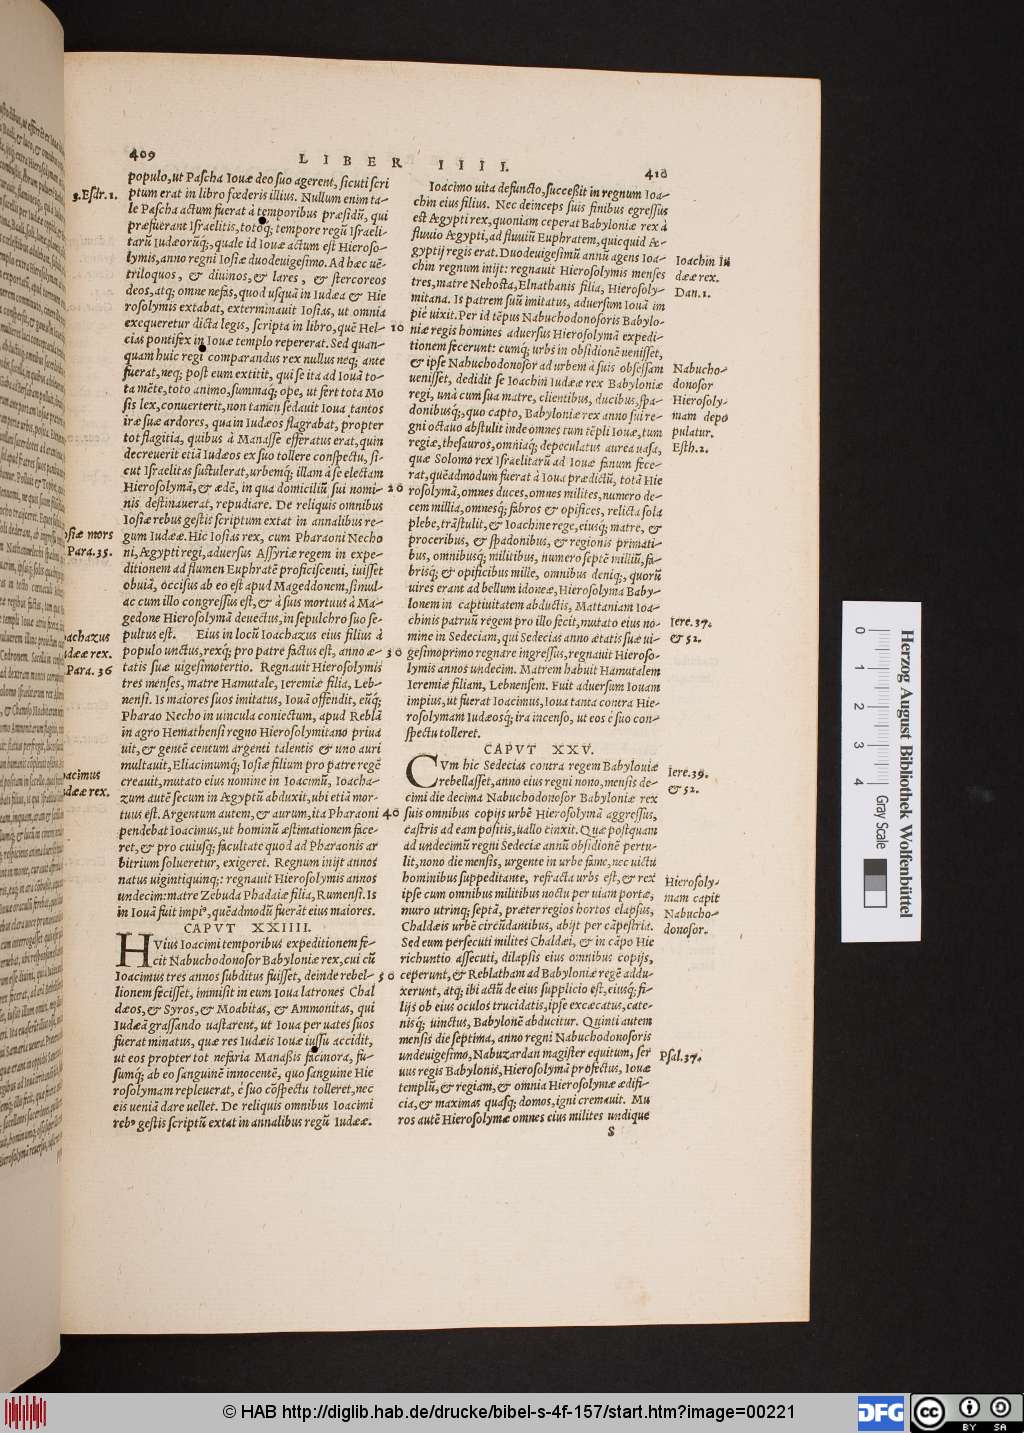 409
LIBER IIII.
410
populo, ut Pascha Iouæ deo suo agerent, sicuti scri
ptum erat in libro fœderis illius. Nullum enim ta-
le Pascha actum fuerat à temporibus præsidũ, qui
præfuerant Israelitis, totoq; tempore regũ Israeli-
tarũ Iudæorũq;, quale id Iouæ actum est Hieroso-
lymis, anno regni Iosiæ duodeuigesimo. Ad hæc uẽ-
triloquos, & diuinos, & lares, & stercoreos
deos, atq; omne nefas, quod usquã in Iudæa & Hie
rosolymis extabat, exterminauit Iosias, ut omnia
exequeretur dicta legis, scripta in libro, quẽ Hel-
cias pontifex in Iouæ templo repererat. Sed quan-
quam huic regi comparandus rex nullus neq; ante
fuerat, neq; post eum extitit, qui se ita ad Iouã to-
ta mẽte, toto animo, summaq; ope, ut fert tota Mo
sis lex, conuerterit, non tamen sedauit Ioua tantos
iræ suæ ardores, qua in Iudæos flagrabat, propter
tot flagitia, quibus à Manasse efferatus erat, quin
decreuerit etiã Iudæos ex suo tollere conspectu, si-
cut Israelitas sustulerat, urbemq; illam à se electam
Hierosolymã, & ædẽ, in qua domiciliũ sui nomi-
nis destinauerat, repudiare. De reliquis omnibus
Iosiæ rebus gestis scriptum extat in annalibus re-
gum Iudææ. Hic Iosias rex, cum Pharaoni Necho
ni, Ægypti regi, aduersus Assyriæ regem in expe-
ditionem ad flumen Euphratẽ proficiscenti, iuisset
obuiã, occisus ab eo est apud Mageddonem, simul-
ac cum illo congressus est, & à suis mortuus à Ma-
gedone Hierosolymã deuectus, in sepulchro suo se-
pultus est. Eius in locũ Ioachazus eius filius à
populo unctus, rexq; pro patre factus est, anno æ-
tatis suæ uigesimotertio. Regnauit Hierosolymis
tres menses, matre Hamutale, Ieremiæ filia, Leb-
nensi. Is maiores suos imitatus, Iouã offendit, eũq;
Pharao Necho in uincula coniectum, apud Reblã
in agro Hemathensi regno Hierosolymitano priua
uit, & gentẽ centum argenti talentis & uno auri
multauit, Eliacimumq; Iosiæ filium pro patre regẽ
creauit, mutato eius nomine in Ioacimũ, Ioacha-
zum autẽ secum in Ægyptũ abduxit, ubi etiã mor-
tuus est. Argentum autem, & aurum, ita Pharaoni
pendebat Ioacimus, ut hominũ æstimationem face-
ret, & pro cuiusq; facultate quod ad Pharaonis ar
bitrium solueretur, exigeret. Regnum inijt annos
natus uigintiquinq;: regnauit Hierosolymis annos
undecim: matre Zebuda Phadaiæ filia, Rumensi. Is
in Iouã fuit impi⁹, quẽadmodũ fuerãt eius maiores.
CAPVT XXIIII.
HVius Ioacimi temporibus expeditionem fe-
cit Nabuchodonosor Babyloniæ rex, cui cũ
Ioacimus tres annos subditus fuisset, deinde rebel-
lionem fecisset, immisit in eum Ioua latrones Chal
dæos, & Syros, & Moabitas, & Ammonitas, qui
Iudæã grassando uastarent, ut Ioua per uates suos
fuerat minatus, quæ res Iudæis Iouæ iussu accidit,
ut eos propter tot nefaria Manassis facinora, fu-
sumq; ab eo sanguinẽ innocentẽ, quo sanguine Hie
rosolymam repleuerat, è suo cõspectu tolleret, nec
eis ueniã dare uellet. De reliquis omnibus Ioacimi
reb⁹ gestis scriptũ extat in annalibus regũ Iudææ.
3.Esdr.1.
osiæ mors
Para.35.
oachazus
udææ rex.
Para. 36
oacimus
udææ rex.
10
20
30
40
50
Ioacimo uita defuncto, successit in regnum Ioa-
chin eius filius. Nec deinceps suis finibus egressus
est Ægypti rex, quoniam ceperat Babyloniæ rex à
fluuio Ægypti, ad fluuiũ Euphratem, quicquid Æ-
gyptij regis erat. Duodeuigesimũ annũ agens Ioa-
chin regnum inijt: regnauit Hierosolymis menses
tres, matre Nehosta, Elnathanis filia, Hierosoly-
mitana. Is patrem suũ imitatus, aduersum Iouã im
piè uixit. Per id tẽpus Nabuchodonosoris Babylo-
niæ regis homines aduersus Hierosolymã expedi-
tionem fecerunt: cumq; urbs in obsidionẽ uenisset,
& ipse Nabuchodonosor ad urbem à suis obsessam
uenisset, dedidit se Ioachin Iudææ rex Babyloniæ
regi, unà cum sua matre, clientibus, ducibus, spa-
donibusq;, quo capto, Babyloniæ rex anno sui re-
gni octauo abstulit inde omnes tum tẽpli Iouæ, tum
regiæ, thesauros, omniaq; depeculatus aurea uasa,
quæ Solomo rex Israelitarũ ad Iouæ fanum fece-
rat, quẽadmodum fuerat à Ioua prædictũ, totã Hie
rosolymã, omnes duces, omnes milites, numero de-
cem millia, omnesq; fabros & opifices, relicta sola
plebe, trãstulit, & Ioachine rege, eiusq; matre, &
proceribus, & spadonibus, & regionis primati-
bus, omnibusq; militibus, numero septẽ milliũ, fa-
brisq; & opificibus mille, omnibus deniq;, quorũ
uires erant ad bellum idoneæ, Hierosolyma Baby-
lonem in captiuitatem abductis, Mattaniam Ioa-
chinis patruũ regem pro illo fecit, mutato eius no-
mine in Sedeciam, qui Sedecias anno ætatis suæ ui-
gesimoprimo regnare ingressus, regnauit Hieroso-
lymis annos undecim. Matrem habuit Hamutalem
Ieremiæ filiam, Lebnensem. Fuit aduersum Iouam
impius, ut fuerat Ioacimus, Ioua tanta contra Hie-
rosolymam Iudæosq; ira incenso, ut eos è suo con-
spectu tolleret.
CAPVT XXV.
CVm hic Sedecias contra regem Babyloniæ
rebellasset, anno eius regni nono, mensis de-
cimi die decima Nabuchodonosor Babyloniæ rex
suis omnibus copijs urbẽ Hierosolymã aggressus,
castris ad eam positis, uallo cinxit. Quæ postquam
ad undecimũ regni Sedeciæ annũ obsidionẽ pertu-
lit, nono die mensis, urgente in urbe fame, nec uictu
hominibus suppeditante, refracta urbs est, & rex
ipse cum omnibus militibus noctu per uiam portæ,
muro utrinq; septã, præter regios hortos elapsus,
Chaldæis urbẽ circũdantibus, abijt per cãpestria.
Sed eum persecuti milites Chaldæi, & in cãpo Hie
richuntio assecuti, dilapsis eius omnibus copijs,
ceperunt, & Reblatham ad Babyloniæ regẽ addu-
xerunt, atq; ibi actũ de eius supplicio est, eiusq; fi-
lijs ob eius oculos trucidatis, ipse excæcatus, cate-
nisq; uinctus, Babylonẽ abducitur. Quinti autem
mensis die septima, anno regni Nabuchodonosoris
undeuigesimo, Nabuzardan magister equitum, ser
uus regis Babylonis, Hierosolymã profectus, Iouæ
templũ, & regiam, & omnia Hierosolymæ ædifi-
cia, & maximas quasq; domos, igni cremauit. Mu
ros autẽ Hierosolymæ omnes eius milites undique
S
Ioachin Iu
dææ rex.
Dan.1.
Nabucho-
donosor
Hierosoly-
mam depo
pulatur.
Esth.2.
Iere.37.
& 52.
Iere.39.
& 52.
Hierosoly-
mam capit
Nabucho-
donosor.
Psal.37.
0 1 2 3 4
Gray Scale
Herzog August Bibliothek Wolfenbüttel
© HAB http://diglib.hab.de/drucke/bibel-s-4f-157/start.htm?image=00221
DFG
cc BY SA